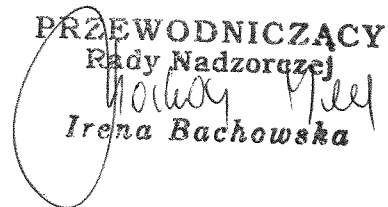 PRZEWODNICZĄCY
Rady Nadzorczej
Irena Bachowska